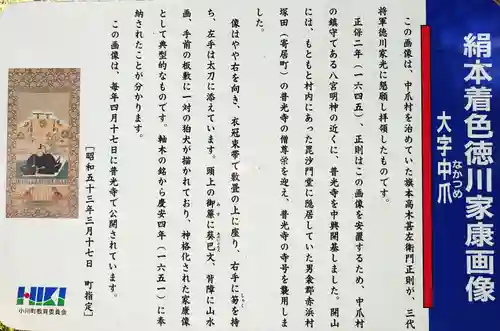 絹本着色徳川家康画像
大字中爪
なかつめ
この画像は、中爪村を治めていた旗本高木甚左衛門正則が、三代
将軍徳川家光に懇願し拝領したものです。
正保二年(一六四五)、正則はこの画像を安置するため、中爪村
の鎮守である八宮明神の近くに、普光寺を中興開基しました。開山
には、もともと村内にあった毘沙門堂に隠居していた男衾郡赤浜村
塚田(寄居町)の普光寺の僧尊栄を迎え、普光寺の寺号を襲用しま
した。
像はやや右を向き、衣冠束帯で敷畳の上に座り、右手に笏を持
しゃく
ち、左手は太刀に添えています。頭上の御簾に葵巴文、背障に山水
みす
画、手前の板敷に一対の狛犬が描かれており、神格化された家康像
として典型的なものです。軸木の銘から慶安四年(一六五一)に奉
納されたことが分かります。
この画像は、毎年四月十七日に普光寺で公開されています。
〔昭和五十三年三月十七日 町指定〕
HIKI
小川町教育委員会